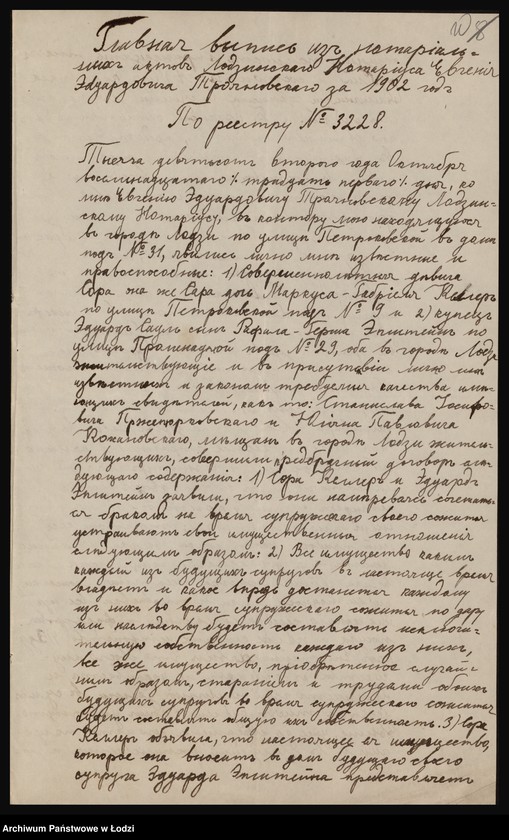 Главная выпись изъ нотаріаль-
ныхъ актовъ Лодзинскаго Нотаріуса Евгенія
Эдуардовича Трояновскаго за 1902 годъ
По реестру № 3228.
Тысяча девятьсотъ второго года Октября
восемнадцатаго % тридцать перваго % дня, ко
мнѣ Евгенію Эдуардовичу Трояновскому Лодзин-
скому Нотаріусу, въ контору мою находящуюся
въ городѣ Лодзи по улицѣ Петроковской въ домѣ
подъ № 31, явились лично мнѣ извѣстные и
правоспособные: 1) Совершеннолѣтняя дѣвица
Сура она же Сара дочь Маркуса-Габріеля Келлеръ
по улицѣ Петроковской подъ № 9 и 2) купецъ
Эдуардъ Саулъ сынъ Рафала-Герша Эпштейнъ по
улицѣ Променадной подъ № 29, оба въ городѣ Лодзи
жительствующіе и въ присутствіи лично мнѣ
извѣстныхъ и закономъ требуемыя качества имѣ-
ющихъ свидѣтелей, какъ то: Станислава Іосифо-
вича Пржепюрковскаго и Юліана Павловича
Кохановскаго, мѣщанъ въ городѣ Лодзи житель-
ствующихъ, совершили предбрачный договоръ слѣ-
дующаго содержанія: 1) Сара Келлеръ и Эдуардъ
Эпштейнъ заявили, что они намѣреваясь сочетать-
ся бракомъ на время супружескаго своего сожитія
устраиваютъ свои имущественныя отношенія
слѣдующимъ образомъ: 2) Все имущество какимъ
каждый изъ будущихъ супруговъ въ настоящее время
владѣетъ и какое впредь достанется каждому
изъ нихъ во время супружескаго сожитія по дару
или наслѣдству будетъ составлять исключи-
тельную собственность каждаго изъ нихъ,
все же имущество, пріобрѣтенное случай-
нымъ образомъ, стараніемъ и трудами обоихъ
будущихъ супруговъ во время супружескаго сожитія
будетъ составлять общую ихъ собственность. 3) Сара
Келлеръ объявила, что настоящее ея имущество,
которое она вноситъ въ домъ будущаго своего
супруга Эдуарда Эпштейна представляетъ
Archiwum Państwowe w Łodzi